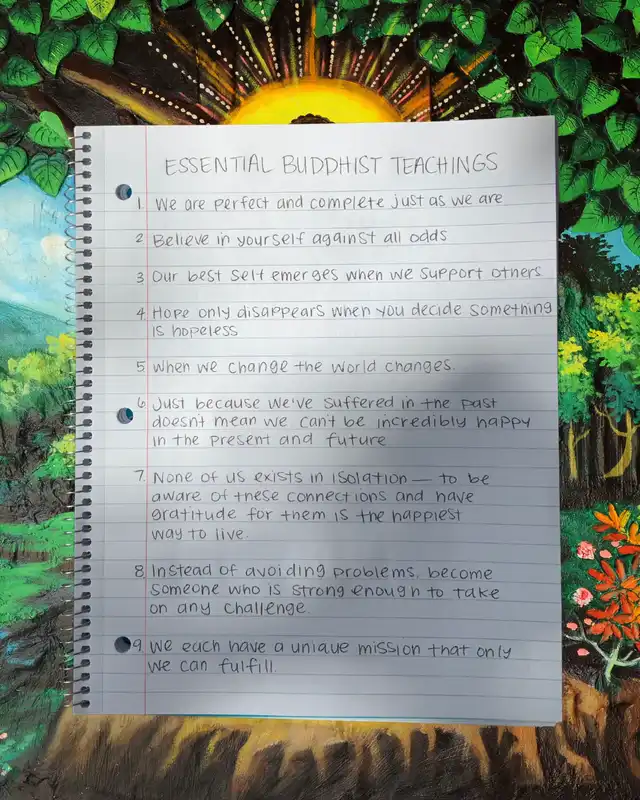 ESSENTIAL BUDDHIST TEACHINGS
1. We are perfect and complete just as we are
2 Believe in yourself against all odds
3 Our best self emerges when we support others
4 Hope only disappears when you decide something
is hopeless
5 When we change the world changes.
6 Just because we've suffered in the past
doesnt mean we can't be incredibly happy
in the present and future
7. None of us exists in isolation — to be
aware of these connections and have
gratitude for them is the happiest
way to live.
8. Instead of avoiding problems, become
someone who is strong enough to take
on any challenge.
9. We each have a unique mission that only
we can fulfill.